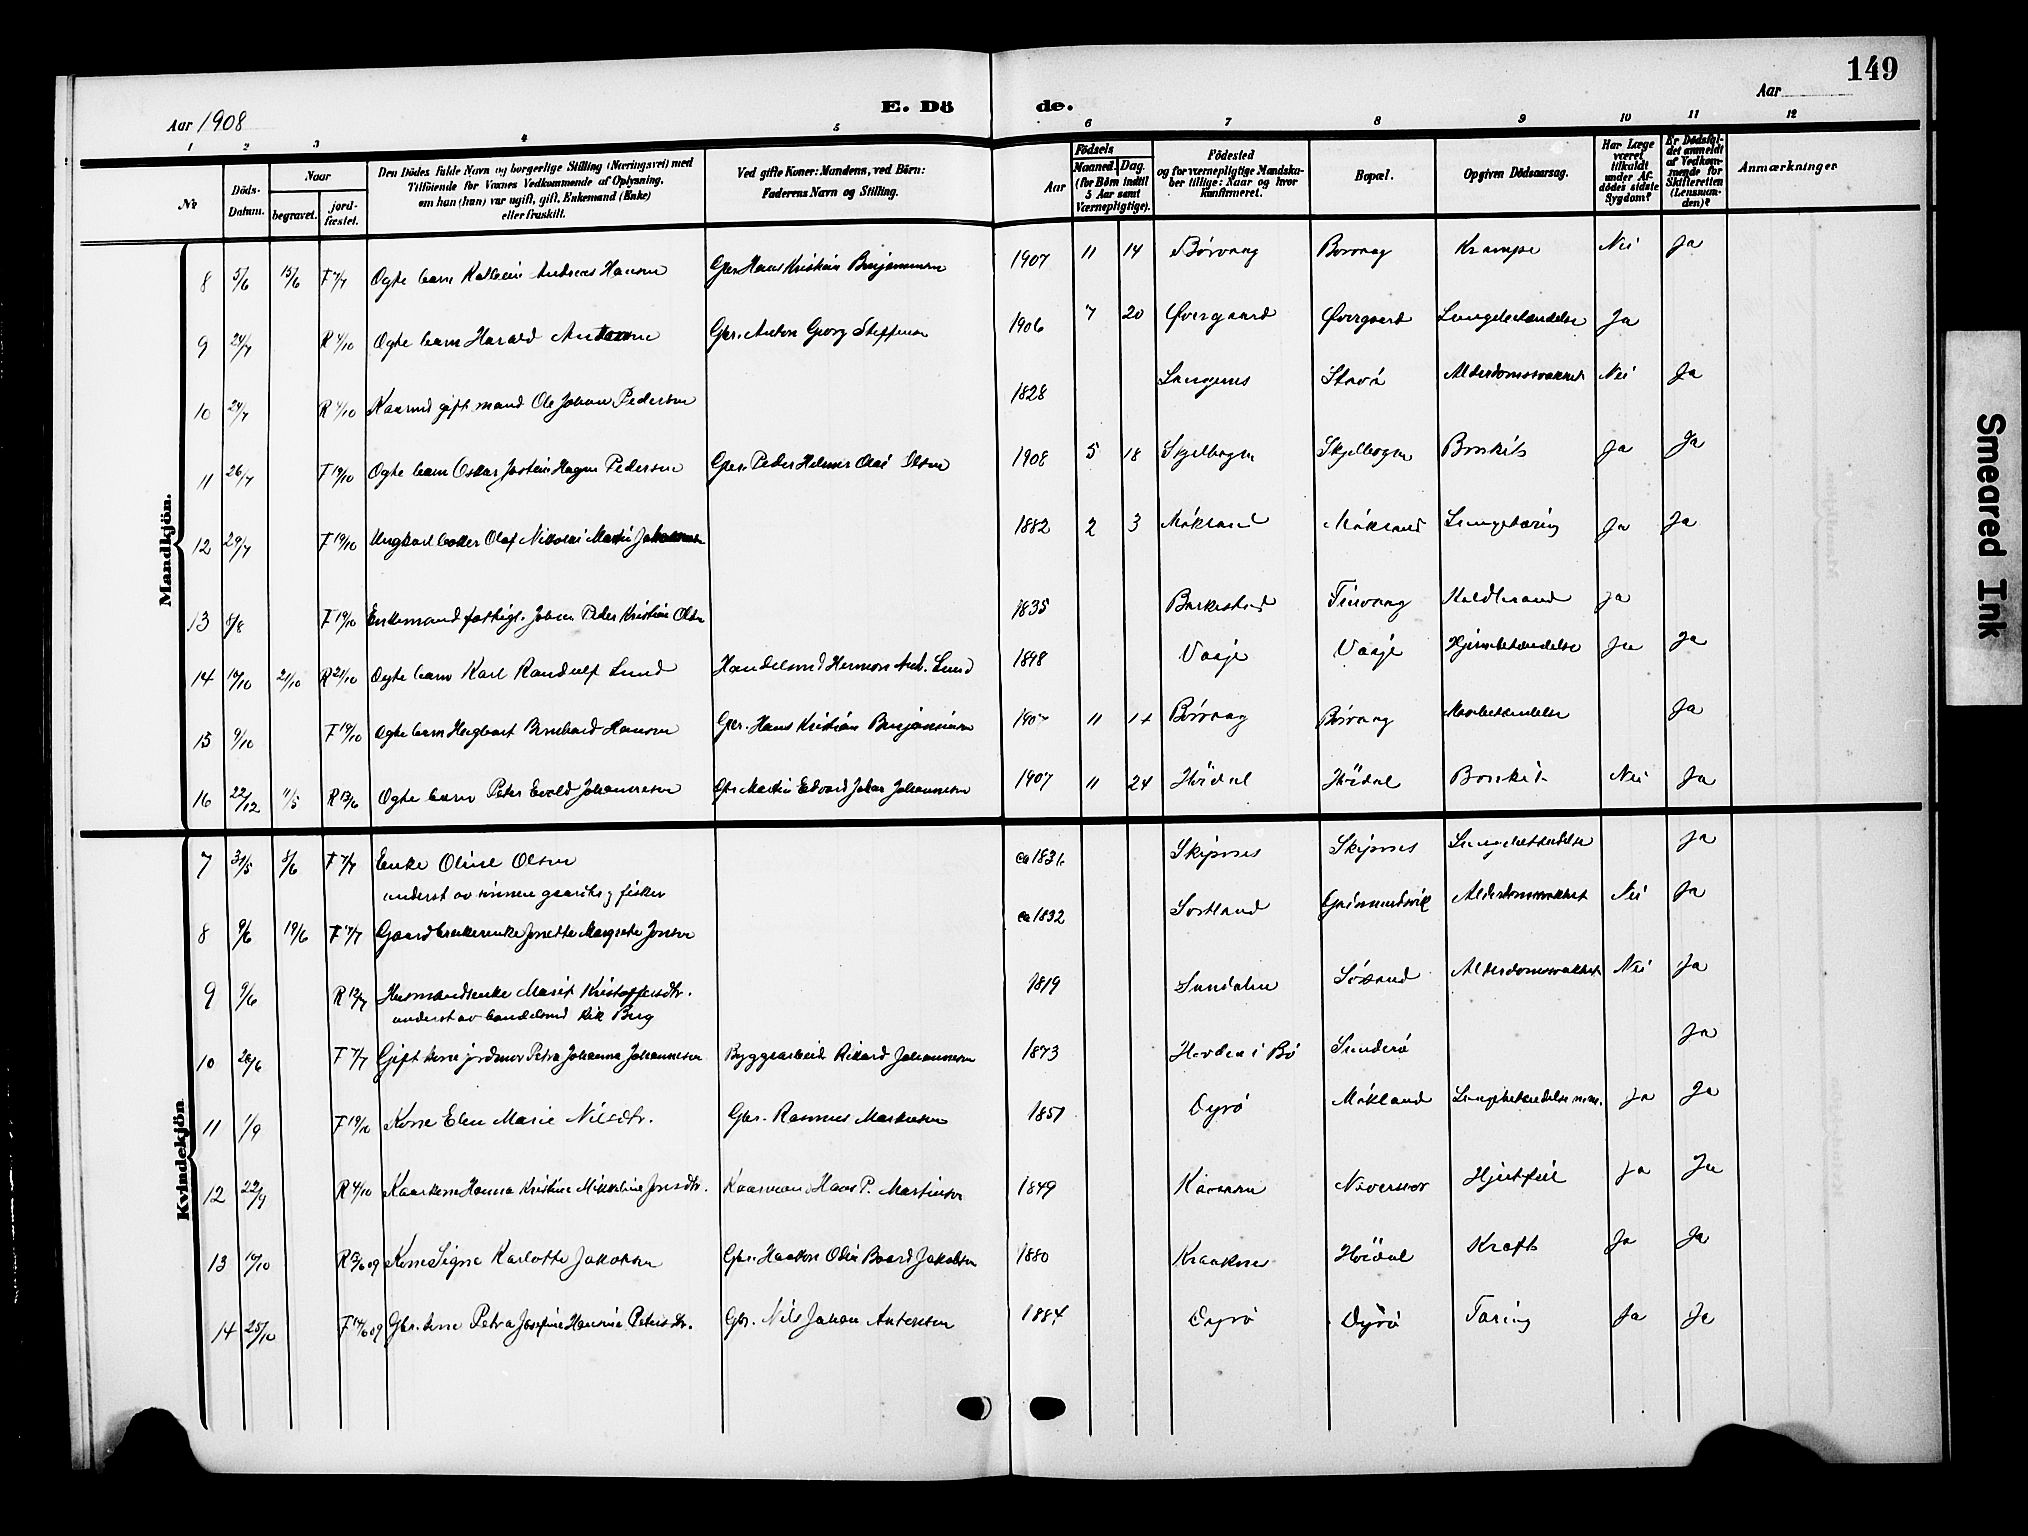 149
E. Döde.
Aar 1908
Aar
1 2 3 4 5 6 7 8 9 10 11 12
No
Döds-Datum.
Naar
begravet.
jord-fæstet.
Den Dödes fulde Navn og borgerlige Stilling (Næringsvei) med Tilföiende for Voxnes Vedkommende af Oplysning, om han (hun) var ugift, gift, Enkemand (Enke) eller fraskilt.
Ved gifte Koner: Mandens, ved Börn: Faderens Navn og Stilling.
Födsels
Aar
Maaned. Dag.
(for Börn indtil 5 Aar samt Værnepligtige).
Födested og for værnepligtige Mandskaber tillige: Naar og hvor konfirmeret.
Bopæl.
Opgiven Dödsaarsag.
Har Læge været tilkaldt under Afdödes sidste Sygdom?
Er Dödsfaldet anmeldt af Vedkommende for Skifteretten (Lensmanden)?
Anmærkninger
Mandkjön.
8 5/6 15/6 F 7/7 Ægte barn Andreas Hansen Gbr. Hans Kristian Benjaminsen 1907 11 14 Börvaag Börvaag Krampe Nei Ja
9 24/7 R 4/10 Ægte barn Harald Antonsen Gbr. Anton Georg Steffensen 1906 7 20 Övergaard Övergaard Lungebetændelse Ja
10 24/7 R 4/10 Kaarmd gift mand Ole Johan Pedersen 1828 Langenes Stavö Alderdomssvakhet Nei Ja
11 26/7 F 19/10 Ægte barn Oskar Jostein Hagen Pedersen Gbr. Peder Helmer Olai Olsen 1908 5 18 Skjelbogen Skjelbogen Bronkit Ja Ja
12 29/7 F 19/10 Ungkarl Olaf Nikolai Martin 1882 2 3 Mökland Mökland Lungetæring Ja Ja
13 8/8 F 19/10 Enkemand fattigl. Johan Peder Kristian Olsen 1835 Barkestad Tinvaag Koldbrand Ja
14 10/10 21/10 R 21/10 Ægte barn Karl Randulf Lund Handelsmd Hermon Ant. Lund 1898 Vaaje Vaaje Hjernebetændelse Ja Ja
15 9/10 F 19/10 Ægte barn Hagbart Bernhard Hansen Gbr. Hans Kristian Benjaminsen 1907 11 14 Börvaag Börvaag Ja
16 22/12 11/5 R 13/6 Ægte barn Peter Evald Johannessen Gbr. Martin Edvard Johan Johannessen 1907 11 24 Höidal Höidal Bronkit Nei Ja
Kvindekjön
7 31/5 8/6 F 7/7 Enke Oline Olsen ca 1836 Skipnes Skipnes Lungebetændelse Ja
underst av sönnen gaardbr. og fisker
8 9/6 19/6 F 7/7 Gaardbrukerenke Jonette Margrete Jonsen ca 1832 Sortland Alderdomssvakhet Nei Ja
9 9/6 R 12/7 Husmandsenke Marit Kristoffersdtr. 1819 Sundalen Alderdomssvakhet Nei Ja
underst av handelsmd Rik Berg
10 26/6 F 7/7 Gift kone jordmor Petra Johanna Johannessen Byggearbeid Rikard Johannessen 1873 Hovden i Bö Sunderö Ja
11 1/9 F 19/10 Kone Elen Marie Nilsdtr. Gbr. Rasmus Markussen 1851 Dyrö Mökland Lungebetændelse m.m. Ja Ja
12 22/9 R 4/10 Kaarkone Hanna Kristine Mikkeline Jonsdtr. Kaarmand Hans P. Martinsen 1849 Hjertfeil Ja Ja
13 10/10 R 13/6 09 Kone Signe Karlotte Jakobsen Gbr. Haakon Odin Baard Jakobsen 1880 Kraaknes Höidal Kræft Ja Ja
14 25/10 F 14/6 09 Gbr. kone Petra Josefine Hansine Petersdtr. Gbr. Nils Johan Antonsen 1884 Dyrö Dyrö Tæring Ja Ja
Smeared Ink